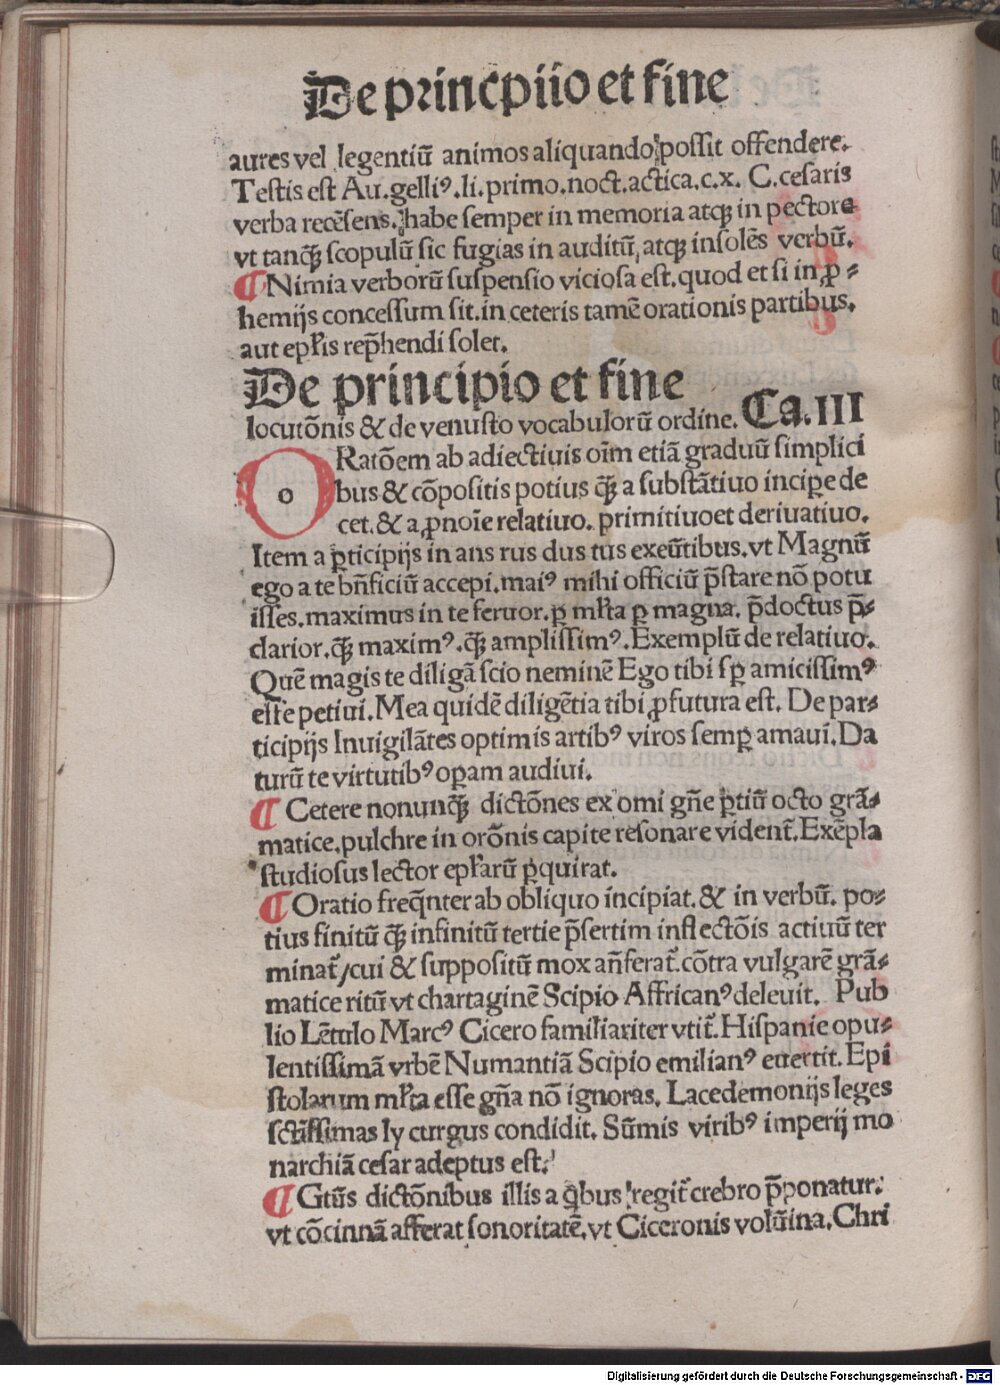 De princpiio et fine
aures vel legentiū animos aliquando possit offendere.
Testis est Au. gelliꝰ. li. primo. noct. actica. c. x. C. cesaris
verba recēsens. habe semper in memoria atqꝫ in pectore
vt tanqꝫ̄ scopulū sic fugias in auditū atqꝫ insolēs verbū.
¶ Nimia verborū suspensio viciosa est. quod et si in ꝓ⸗
hemijs concessum sit. in ceteris tamē orationis partibus.
aut epl̄is rep̄hendi solet.
De principio et fine
locutōnis & de venusto vocabulorū ordine. Ca. III
o Ratōem ab adiectiuis oīm etiā graduū simplici
bus & cōpositis potius qꝫ̄ a substātiuo incipe de
cet. & a ꝓnoīe relatiuo. primitiuo et deriuatiuo.
Item a ꝑticipijs in ans rus dus tus exeūtibus. vt Magnū
ego a te bn̄ficiū accepi. maiꝰ mihi officiū p̄stare nō potu
isses. maximus in te feruor. ꝑ ml̄ta ꝑ magna. p̄doctus p̄⸗
clarior. qꝫ̄ maximꝰ. qꝫ̄ amplissimꝰ. Exemplū de relatiuo.
Quē magis te diligā scio neminē Ego tibi sꝑ amicissimꝰ
esse petiui. Mea quidē diligētia tibi ꝓfutura est. De par⸗
ticipijs Inuigilātes optimis artibꝰ viros semꝑ amaui. Da
turū te virtutibꝰ oꝑam audiui.
¶ Cetere nonunqꝫ̄ dictōnes ex omi gn̄e ꝑtiū octo grā⸗
matice. pulchre in orōnis capite resonare vident̄. Exēpla
studiosus lector epl̄arū ꝑquirat.
¶ Oratio freq̄nter ab obliquo incipiat. & in verbū. po⸗
tius finitū qꝫ̄ infinitū tertie p̄sertim inflectōis actiuū ter
minat̄ / cui & suppositū mox an̄ferat̄. cōtra vulgarē grā⸗
matice ritū vt chartaginē Scipio Affricanꝰ deleuit. Pub
lio Lētulo Marcꝰ Cicero familiariter vtit̄. Hispanie opu⸗
lentissimā vrbē Numantiā Scipio emilianꝰ euertit. Epi
stolarum ml̄ta esse gn̄a nō ignoras. Lacedemonijs leges
sctīssimas ly curgus condidit. Sūmis viribꝰ imperij mo
narchiā cesar adeptus est.
¶ Gtūs dictōnibus illis a qͥbus regit̄ crebro p̄ponatur.
vt cōcinnā afferat sonoritatē. vt Ciceronis volūina. Chri
Digitalisierung gefördert durch die Deutsche Forschungsgemeinschaft - DFG